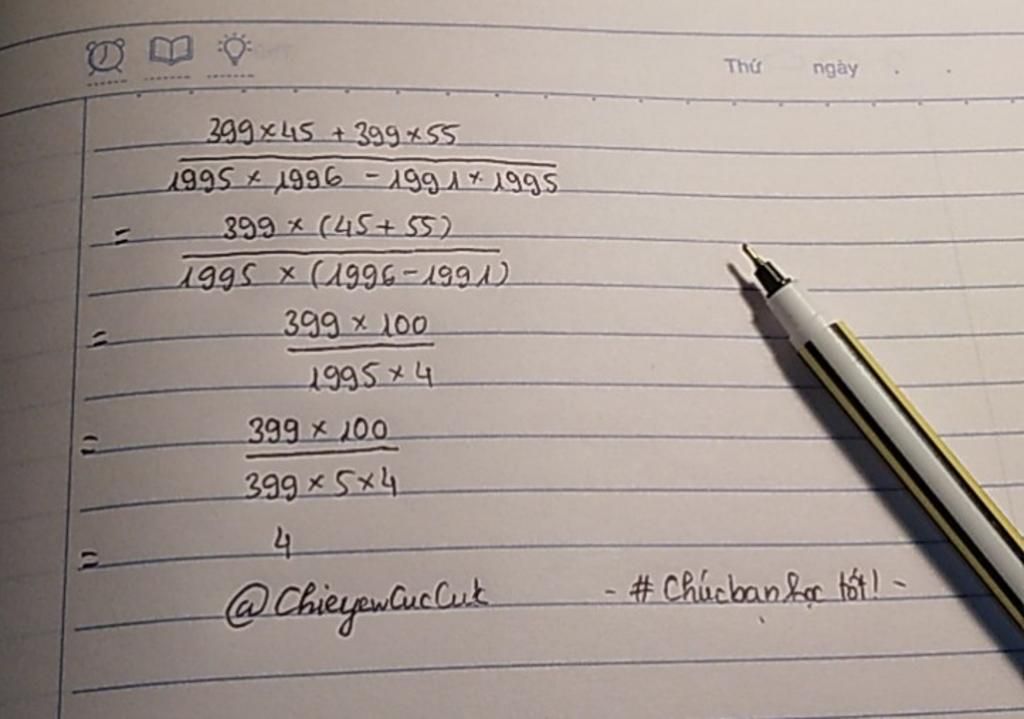 Thứ ngày . .
399 × 45 + 399 × 55
1995 × 1996 - 1991 × 1995
= 399 × (45 + 55)
1995 × (1996 - 1991)
= 399 × 100
1995 × 4
= 399 × 100
399 × 5 × 4
= 4
@ChieyewCucCuk - # Chúc bạn học tốt! -